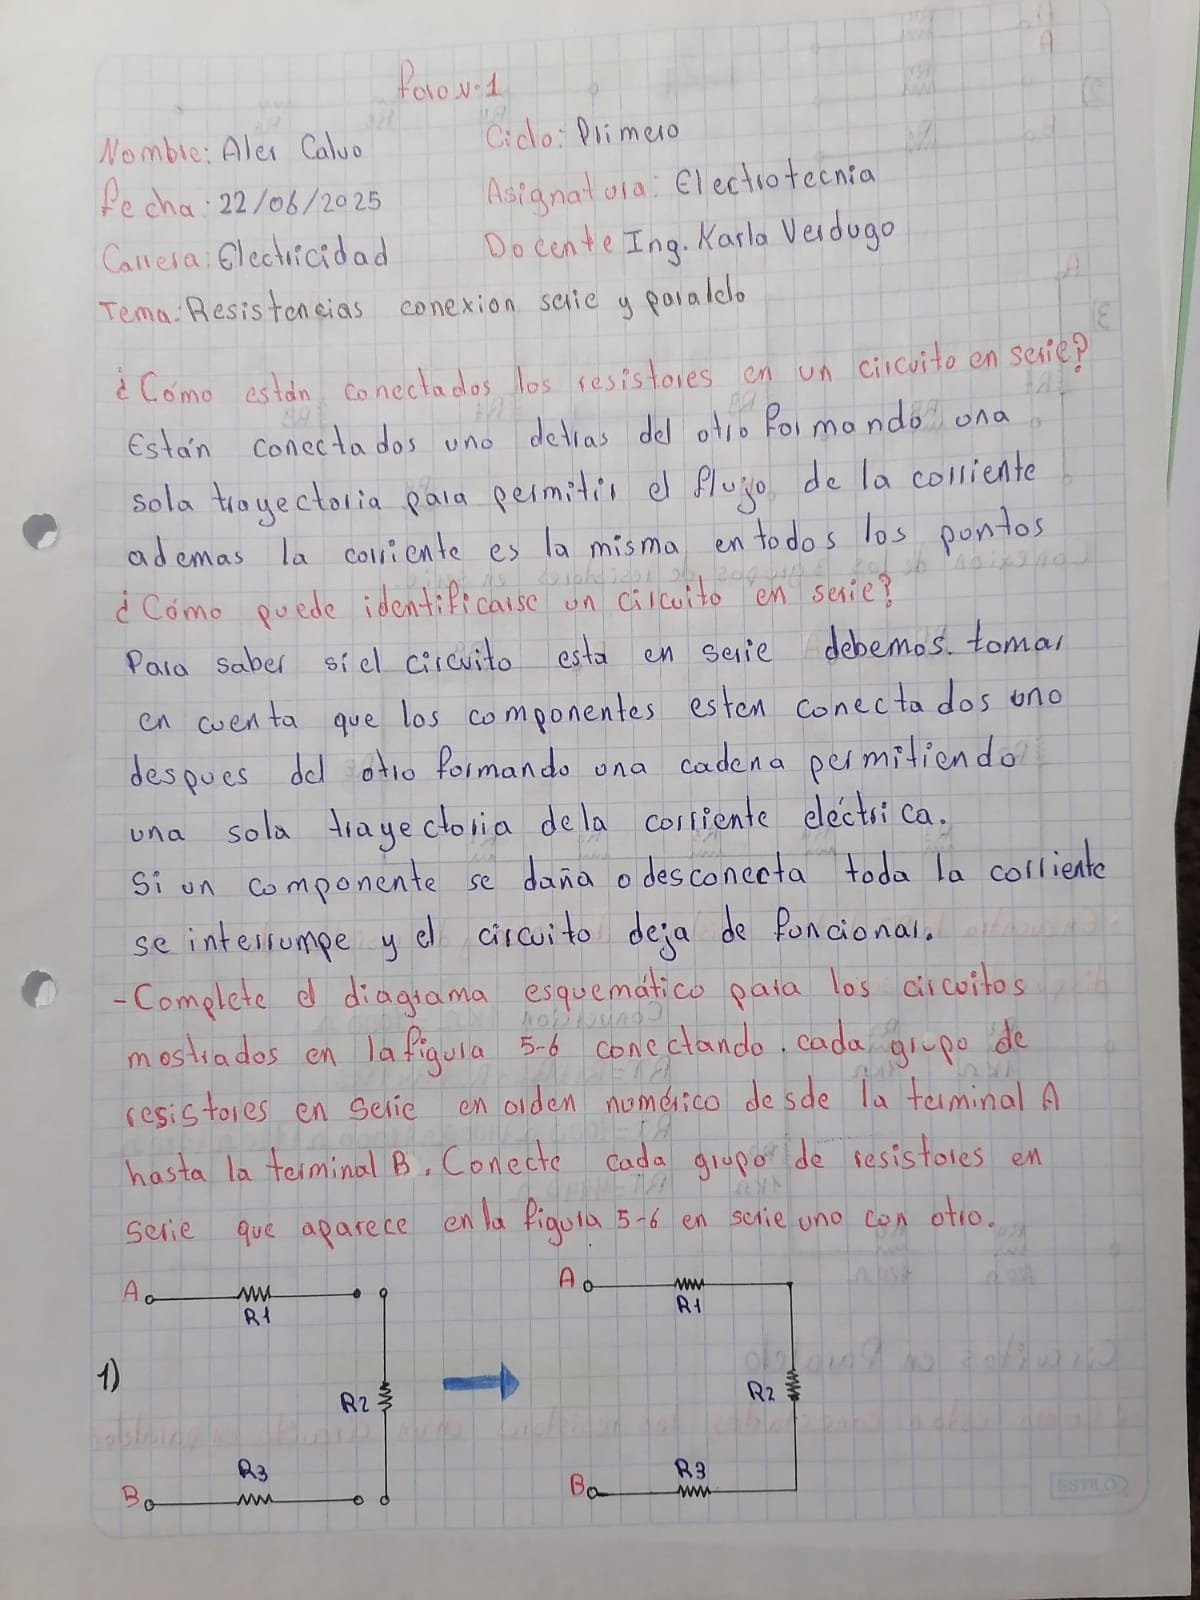 Foro N.1
Nombre: Alex Calvo
Ciclo: Primero
Fecha: 22/06/2025
Asignatura: Electrotecnia
Carrera: Electricidad
Docente Ing. Karla Verdugo
Tema: Resistencias conexion serie y paralelo
¿Cómo están conectados los resistores en un circuito en serie?
Están conectados uno detras del otro formando una
sola trayectoria para permitir el flujo de la corriente
ademas la corriente es la misma en todos los puntos
¿Cómo puede identificarse un circuito en serie?
Para saber si el circuito esta en serie debemos tomar
en cuenta que los componentes esten conectados uno
despues del otro formando una cadena permitiendo
una sola trayectoria de la corriente eléctrica.
Si un componente se daña o desconecta toda la corriente
se interrumpe y el circuito deja de funcionar.
- Complete el diagrama esquemático para los circuitos
mostrados en la figura 5-6 conectando cada grupo de
resistores en Serie en orden numérico desde la terminal A
hasta la terminal B. Conecte cada grupo de resistores en
Serie que aparece en la figura 5-6 en serie uno con otro.
A R1
A R1
1)
R2
R2
B R3
B R3
ESTILO